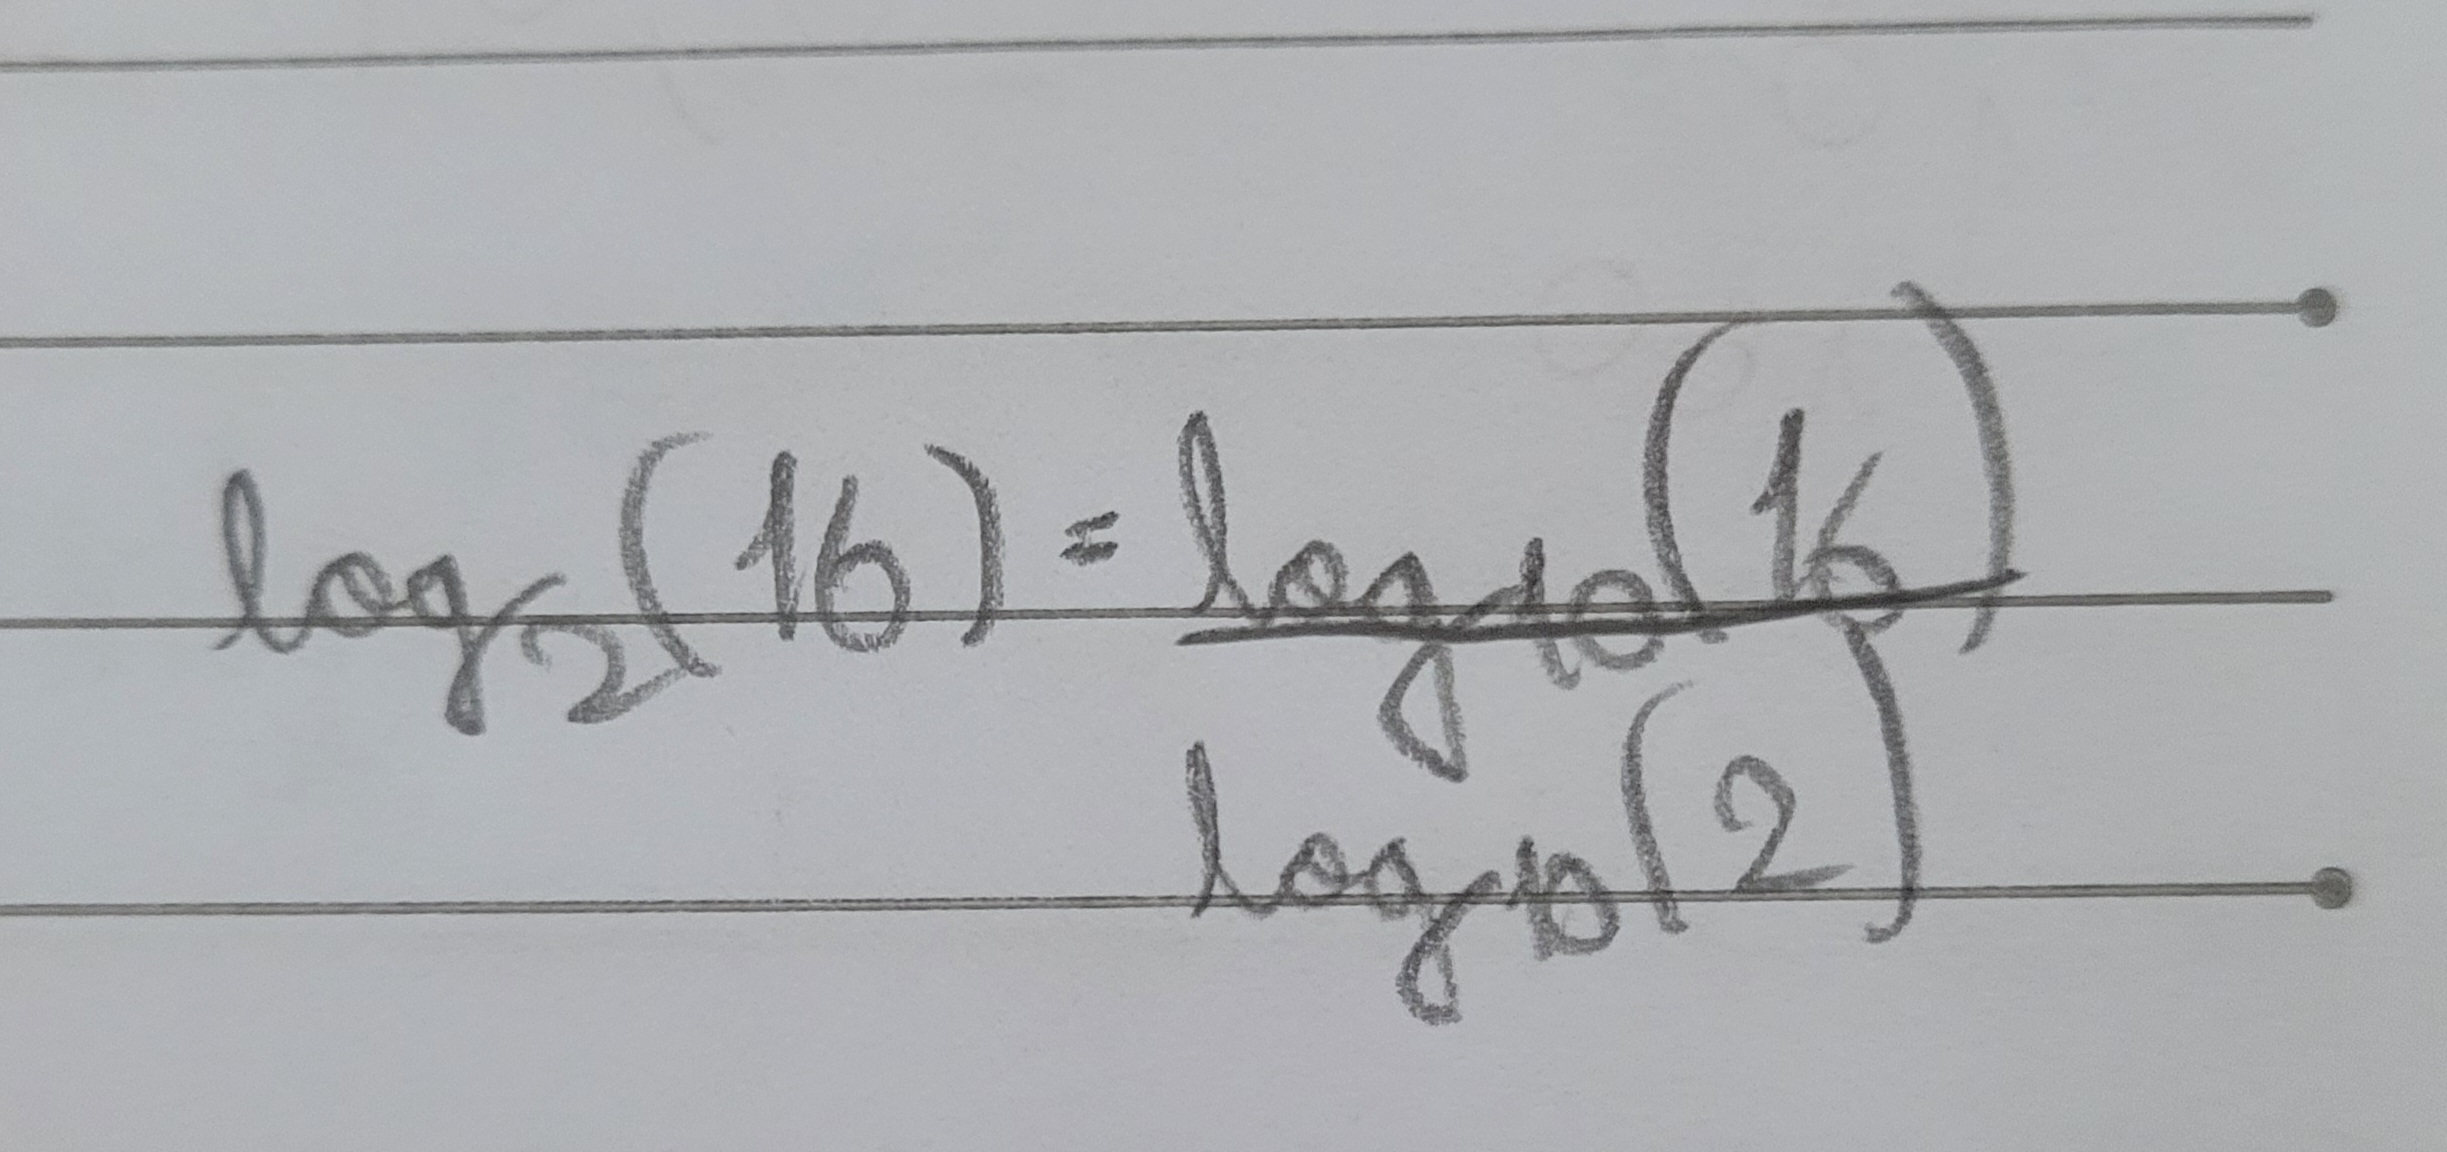 log₂(16) = log₁₀(16)
log₁₀(2)